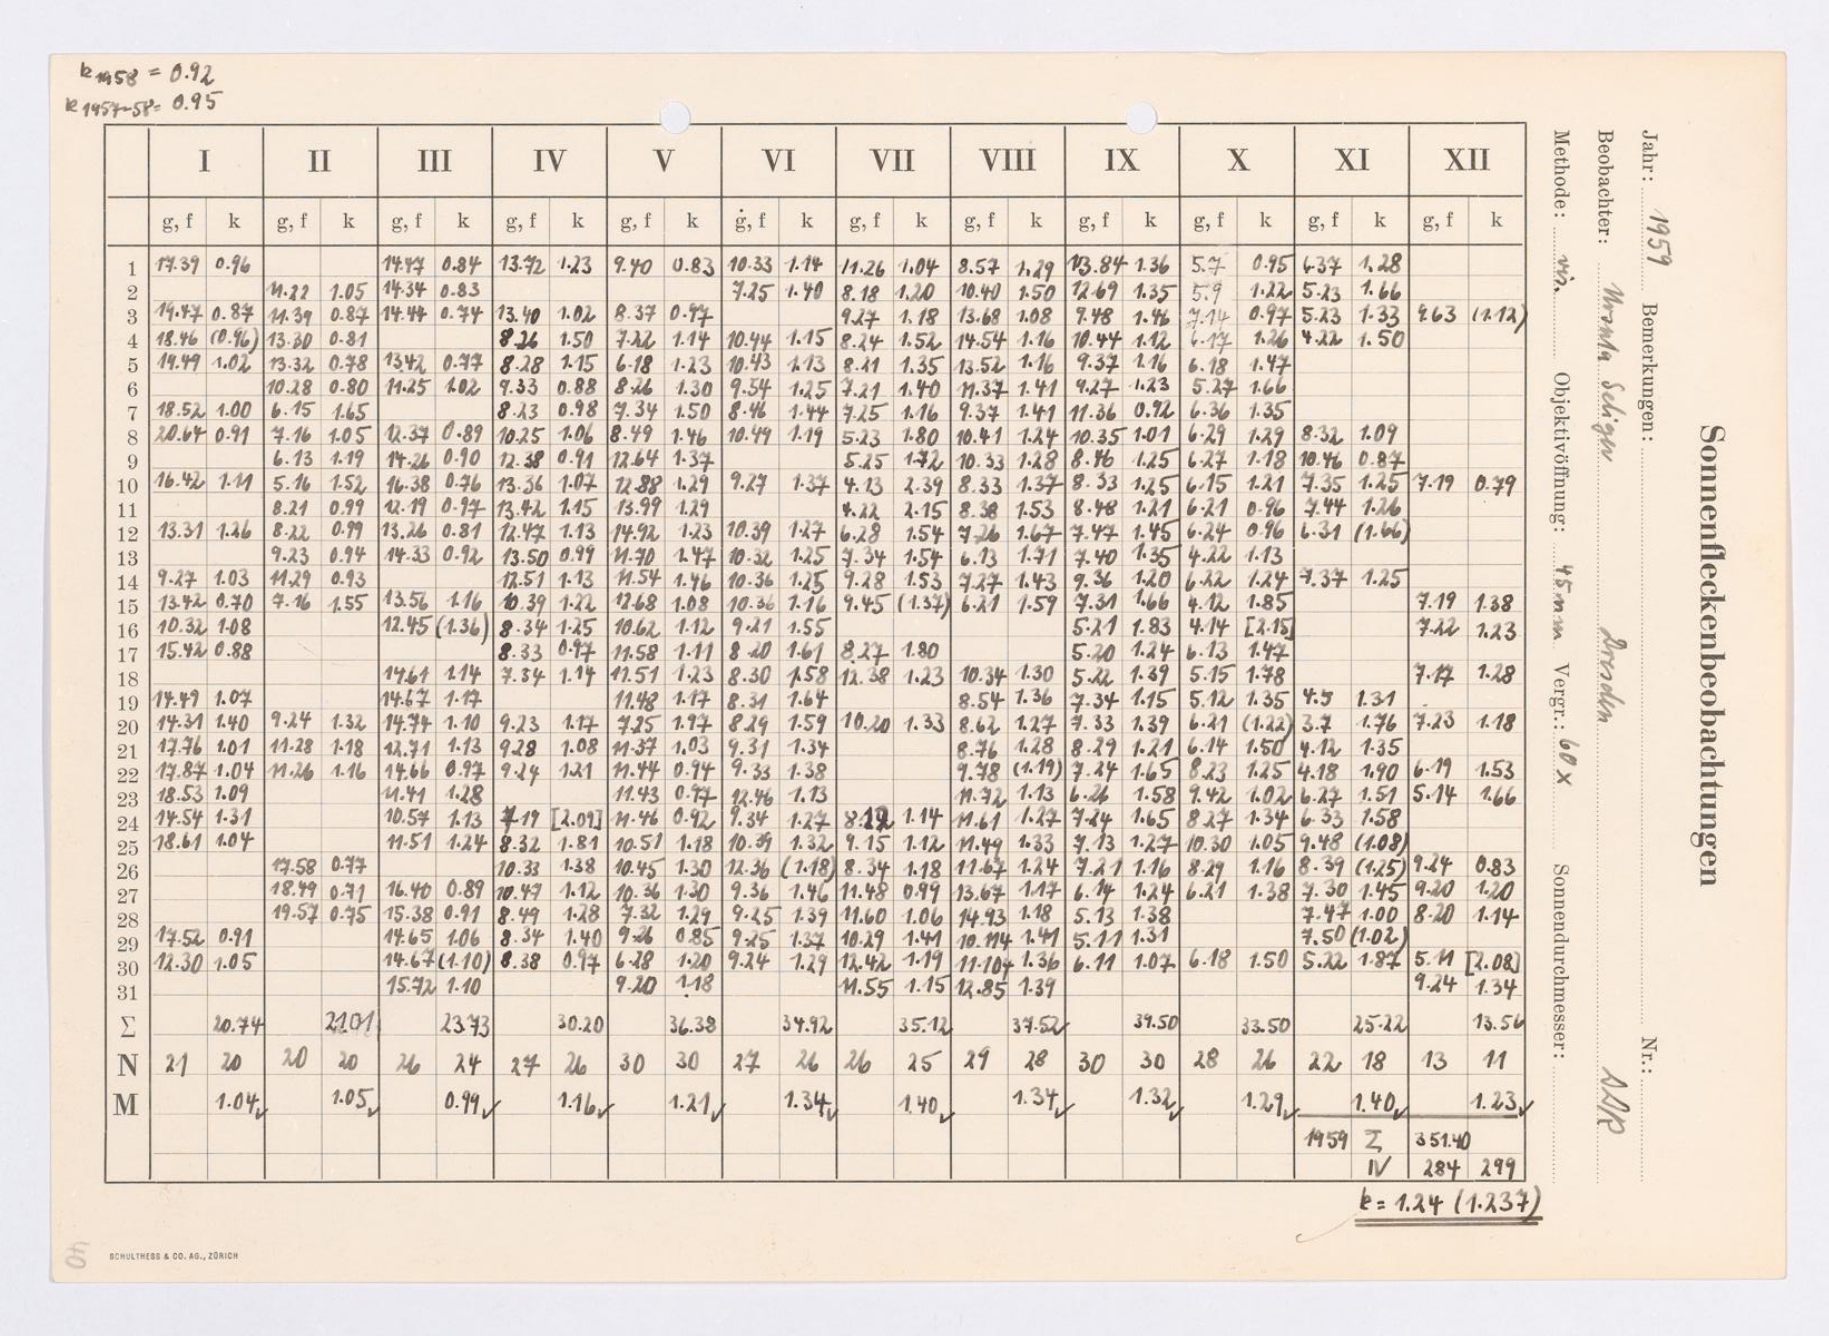 k1958 = 0.92
k1957-58 = 0.95
Sonnenfleckenbeobachtungen
Jahr: 1959 Bemerkungen: Nr.:
Beobachter: Dresden DDR
Methode: vis. Objektivöffnung: 45 mm Vergr.: 60 x Sonnendurchmesser:
I II III IV V VI VII VIII IX X XI XII
g, f k g, f k g, f k g, f k g, f k g, f k g, f k g, f k g, f k g, f k g, f k g, f k
1 17.39 0.96 14.47 0.84 13.72 1.23 9.40 0.83 10.33 1.14 11.26 1.04 8.57 1.29 13.84 1.36 5.7 0.95 6.37 1.28
2 11.22 1.05 14.34 0.83 7.25 1.40 8.18 1.20 10.40 1.50 12.69 1.35 5.9 1.22 5.23 1.66
3 19.47 0.87 11.39 0.87 14.44 0.74 13.40 1.02 8.37 0.97 9.27 1.18 13.68 1.08 9.48 1.46 7.14 0.97 5.23 1.33 9.63 (1.12)
4 18.46 (0.96) 13.30 0.81 8.26 1.50 7.22 1.14 10.44 1.15 8.24 1.52 14.54 1.16 10.44 1.12 6.17 1.26 4.22 1.50
5 19.49 1.02 13.32 0.78 13.42 0.77 8.28 1.15 6.18 1.23 10.43 1.13 8.21 1.35 13.52 1.16 9.37 1.16 6.18 1.47
6 10.28 0.80 11.25 1.02 9.33 0.88 8.26 1.30 9.54 1.25 7.21 1.40 11.37 1.41 9.27 1.23 5.27 1.66
7 18.52 1.00 6.15 1.65 8.23 0.98 7.34 1.50 8.46 1.44 7.25 1.16 9.37 1.41 11.36 0.92 6.36 1.35
8 20.64 0.91 7.16 1.05 12.37 0.89 10.25 1.06 8.49 1.46 10.49 1.19 5.23 1.80 10.41 1.24 10.35 1.01 6.29 1.29 8.32 1.09
9 6.13 1.19 14.26 0.90 12.38 0.91 12.64 1.37 5.25 1.72 10.33 1.28 8.46 1.25 6.27 1.18 10.46 0.87
10 16.42 1.11 5.16 1.52 16.38 0.76 13.36 1.07 12.88 1.29 9.27 1.37 4.13 2.39 8.33 1.37 8.33 1.25 6.15 1.21 7.35 1.25 7.19 0.79
11 8.21 0.99 12.19 0.97 13.42 1.15 13.99 1.29 4.22 2.15 8.38 1.53 8.48 1.21 6.21 0.96 7.44 1.26
12 13.31 1.26 8.22 0.99 13.26 0.81 12.47 1.13 14.92 1.23 10.39 1.27 6.28 1.54 7.26 1.67 7.47 1.45 6.24 0.96 6.31 (1.66)
13 9.23 0.94 14.33 0.92 13.50 0.99 11.70 1.47 10.32 1.25 7.34 1.54 6.13 1.71 7.40 1.35 4.22 1.13
14 9.27 1.03 11.29 0.93 12.51 1.13 11.54 1.46 10.36 1.25 9.28 1.53 7.27 1.43 9.36 1.20 6.22 1.24 7.37 1.25
15 13.42 0.70 7.16 1.55 13.56 1.16 10.39 1.22 12.68 1.08 10.36 1.16 9.45 (1.37) 6.21 1.59 7.31 1.66 4.12 1.85 7.19 1.38
16 10.32 1.08 12.45 (1.36) 8.34 1.25 10.62 1.12 9.21 1.55 5.21 1.83 4.14 [2.15] 7.22 1.23
17 15.42 0.88 8.33 0.97 11.58 1.11 8.20 1.61 8.27 1.80 5.20 1.24 6.13 1.47
18 14.61 1.14 7.34 1.14 11.51 1.23 8.30 1.58 12.38 1.23 10.34 1.30 5.22 1.39 5.15 1.78 7.17 1.28
19 14.49 1.07 14.67 1.17 11.48 1.17 8.31 1.64 8.54 1.36 7.34 1.15 5.12 1.35 4.5 1.31
20 14.31 1.40 9.24 1.32 14.74 1.10 9.23 1.17 7.25 1.97 8.29 1.59 10.20 1.33 8.62 1.27 7.33 1.39 6.21 (1.22) 3.7 1.76 7.23 1.18
21 17.76 1.01 11.28 1.18 12.71 1.13 9.28 1.08 11.37 1.03 9.31 1.34 8.76 1.28 8.29 1.21 6.14 1.50 4.12 1.35
22 17.87 1.04 11.26 1.16 14.66 0.97 9.24 1.21 11.44 0.94 9.33 1.38 9.78 (1.19) 7.24 1.65 8.23 1.25 4.18 1.90 6.19 1.53
23 18.53 1.09 11.41 1.28 11.43 0.97 12.46 1.13 11.72 1.13 6.26 1.58 9.42 1.02 6.27 1.51 5.14 1.66
24 14.54 1.31 10.57 1.13 7.19 [2.09] 11.46 0.92 9.34 1.27 8.22 1.14 11.61 1.27 7.24 1.65 8.27 1.34 6.33 1.58
25 18.61 1.04 11.51 1.24 8.32 1.81 10.51 1.18 10.39 1.32 9.15 1.12 11.49 1.33 7.13 1.27 10.30 1.05 9.48 (1.08)
26 17.58 0.77 10.33 1.38 10.45 1.30 12.36 (1.18) 8.34 1.18 11.67 1.24 7.21 1.16 8.29 1.16 8.39 (1.25) 9.24 0.83
27 18.49 0.71 16.40 0.89 10.47 1.12 10.36 1.30 9.36 1.46 11.48 0.99 13.67 1.17 6.14 1.24 6.21 1.38 7.30 1.45 9.20 1.20
28 19.57 0.75 15.38 0.91 8.49 1.28 7.32 1.29 9.25 1.39 11.60 1.06 14.93 1.18 5.13 1.38 7.47 1.00 8.20 1.14
29 17.52 0.91 14.65 1.06 8.34 1.40 9.26 0.85 9.25 1.37 10.29 1.41 10.114 1.41 5.11 1.31 7.50 (1.02)
30 12.30 1.05 14.67 (1.10) 8.38 0.97 6.28 1.20 9.24 1.29 12.42 1.19 11.104 1.36 6.11 1.07 6.18 1.50 5.22 1.87 5.11 [2.08]
31 15.72 1.10 9.20 1.18 11.55 1.15 12.85 1.39 9.24 1.34
Σ 20.74 21.01 23.73 30.20 36.38 34.92 35.12 37.52 39.50 33.50 25.22 13.56
N 21 20 20 20 26 24 27 26 30 30 27 26 26 25 29 28 30 30 28 26 22 18 13 11
M 1.04 1.05 0.99 1.16 1.21 1.34 1.40 1.34 1.32 1.29 1.40 1.23
1959 Σ 351.40
N 284 299
k = 1.24 (1.237)
40
SCHULTHESS & CO. AG., ZÜRICH